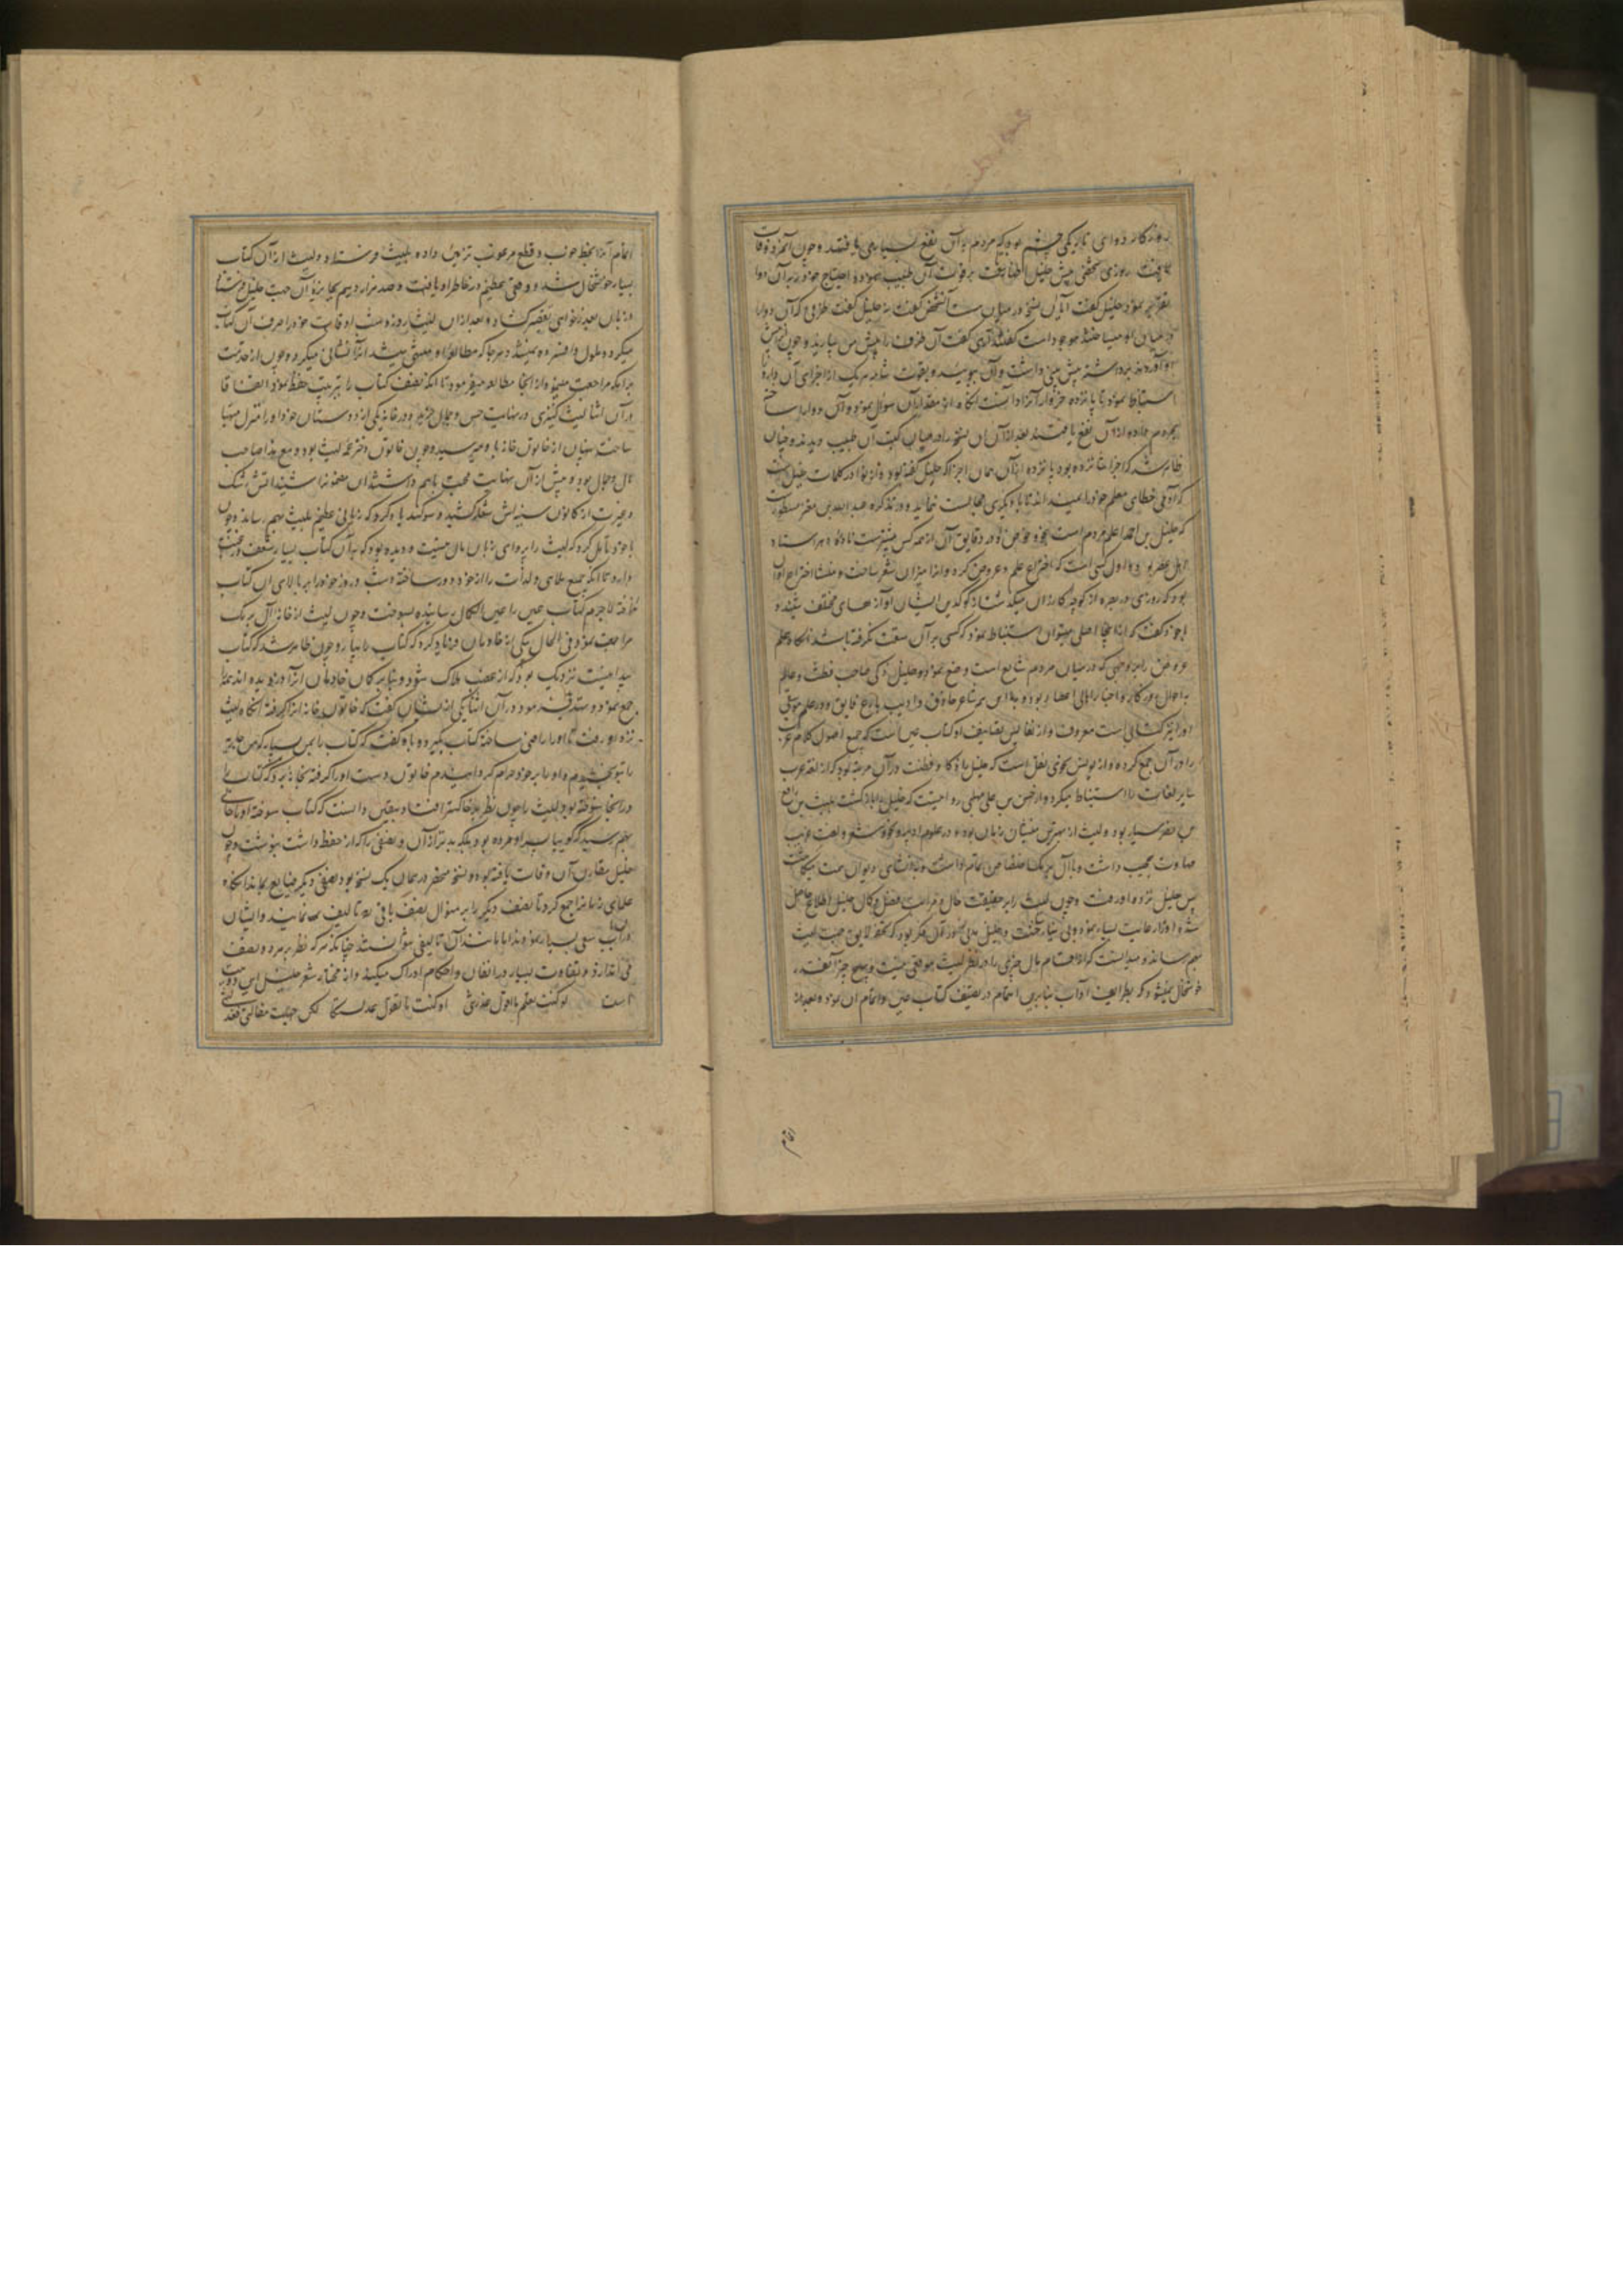 روزکار دوای تاریکی چشم بود که مردم از آن نفع بسیار می یافتند و چون آنمرد وفات
یافت روزی شخصی پیش خلیل اظهار بر فوت آن طبیب نموده احتیاج خود را بآن دوا
تقریر نمود خلیل گفت آیا آن نسخه در میان هست آنشخص گفت نه خلیل گفت ظرفی که آن دوا را
در میان او میساخته موجود است گفت آری گفت آن ظرف را پیش من بیارید و چون
آوردند برداشته پیش بینی داشت و آن بوئیده و بقوت شامه هر یک از اجزای آن دارو را
استنباط نمود تا پانزده جزو از آنرا دانست آنکاه از مقدار آن سؤال نمود و آن دوا را ساخته
بمردم داد از آن نفع یافتند بعد از آن نسخه را در میان کتب آن طبیب دیدند و چنان
ظاهر شد که اجزا شانزده بود پانزده از آن همان اجزا که خلیل گفته بود و از نوادر کلمات خلیل
که آدمی خطای معلم خود را نمیداند تا با دیگری مجالست ننماید و در تذکره عبدالله بن معتز مسطور است
که خلیل بن احمد اعلم مردم است بنحو و غوص او در دقایق آن از همه کس بیشتر است و استاد
اهل عصر بود و اول کسی است که اختراع علم عروض کرده و آنرا میزان شعر ساخت و منشأ اختراع آن
بود که روزی در بصره از کوچه کازران میگذشت از کوبیدن ایشان آوازهای مختلف شنید و
با خود گفت که از اینجا اصلی میتوان استنباط نمود که کسی بر آن سبقت نکرفته باشد آنکاه علم
عروض را بر وجهی که در میان مردم شایع است وضع نمود و خلیل ذکی صاحب فطنت و عالم
باحوال روزکار و اخبار اهالی اعصار بود و با این همه شاعر حاذق و ادیب بارع فایق و در علم موسیقی
او را نیز کتابی است معروف و از نفایس تصانیف او کتاب عین است که جمیع اصول کلام عرب
را در آن جمع کرده و از یونس نحوی نقل است که خلیل را ذکا و فطنت در آن مرتبه بود که از لغة عرب
سایر لغات را استنباط میکرد و از حسن بن علی مهلبی روایتست که خلیل را بازکشت بلیث بن رافع
بن نصر سیار بود و لیث از بهترین منشیان زمان بود و در علوم ادبیه و نحو و شعر و لغت غریب
مهارت عجیب داشت و با آل برمک اختصاص تمام داشت و
پس خلیل نزد او رفت و چون لیث را بر حقیقت حال و مراتب فضل و کمال خلیل اطلاع حاصل
شد او را رعایت بسیار نمود و خلیل بدین فکر بود که تحفه لایق جهت لیث
بهم رساند و میدانست که اقسام مال چیزی را در نظر لیث موقعی نیست و بهیچ چیز آنقدر
خوشحال نمیشود که بطرایف آداب بنابرین اهتمام در تصنیف کتاب عین و اتمام آن نمود و بعد از
اتمام
اتمام آنرا بخط خوب و قطع مرغوب تزیین داده بلیث فرستاد و لیث از آن کتاب
بسیار خوشحال شد و وقعی عظیم در خاطر او یافت و صد هزار درهم بجایزه آن جهت خلیل فرستاد
و زبان بعذرخواهی تقصیر کشاد و بعد از آن لیث روز و شب اوقات خود را صرف آن کتاب
میکرد و ملول و افسرده نمیشد و هر جا که مطالعه او منتهی میشد آنرا نشانی میکرد و چون از خدمت
برامکه مراجعت مینمود از آنجا مطالعه میفرمود تا آنکه نصف کتاب را بترتیب حفظ نمود اتفاقا
در آن اثنا لیث کنیزی در نهایت حسن و جمال خرید و در خانه یکی از دوستان خود او را منزل مهیا
ساخت پنهان از خاتون خانه با وی میرسید و چون خاتون دختر عم لیث بود و مع هذا صاحب
مال و جمال بود و پیش از آن نهایت محبت باهم داشتند این معنی را شنید آتش رشک
و غیرت از کانون سینه اش شعله کشید و سوکند یاد کرد که زیانی عظیم بلیث بهم رساند و چون
با خود تأمل کرد که لیث را پروای زیان مال نیست و دیده بود که بآن کتاب بسیار شعف و محبت
دارد تا آنکه جمیع ملاهی و لذات را از خود دور ساخته و شب و روز خود را بر بالای آن کتاب
انداخته لاجرم کتاب عین را عین الکمال رسانیده بسوخت و چون لیث از خانه آل برمک
مراجعت نمود فی الحال یکی از خادمان فریاد کرد که کتاب را بیارد و چون ظاهر شد که کتاب
پیدا نیست نزدیک بود که از غصه هلاک شود و بنابر کمان خادمان آنرا دزدیده اند همه را
جمع نمود و تهدید میفرمود در آن اثنا یکی از ایشان گفت که خاتون خانه آنرا کرفته آنکاه لیث
نزد او رفت تا او را راضی ساخته کتاب بکیرد و باو گفت که کتاب را بمن بسپار که من جاریه
را بتو بخشیدم و او را بر خود حرام کردانیدم خاتون دست او را کرفته بخانه برد که کتاب را
در آنجا سوخته بود لیث را چون نظر بر خاکستر افتاد و بیقین دانست که کتاب سوخته او را حالتی
بهم رسید که کوییا پسر او مرده بود بلکه بدتر از آن و نصفی را که از حفظ داشت بنوشت و چون
خلیل مقارن آن وفات یافته بود و نسخه منحصر در همان یک نسخه بود نصفی دیکر ضایع بماند آنکاه
علمای زمانرا جمع کرد تا نصف دیکر را بر منوال نصف باقی تألیف نمایند و ایشان
در آن باب سعی بسیار نمودند اما مانند آن تألیفی نتوانستند چنانکه هر که نظر بهر دو نصف
می اندازد تفاوت بسیار در اتقان و احکام ادراک میکند و از مختار شعر خلیل این دو بیت
است لو کنت تعلم ما اقول عذرتنی او کنت ما تقول عذلتکا لکن جهلت مقالتی فعذلتنی